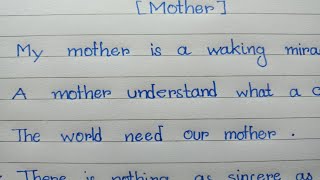 [Mother]
My mother is a waking mira
A mother understand what a c
The world need our mother .
There is nothing as sincere as